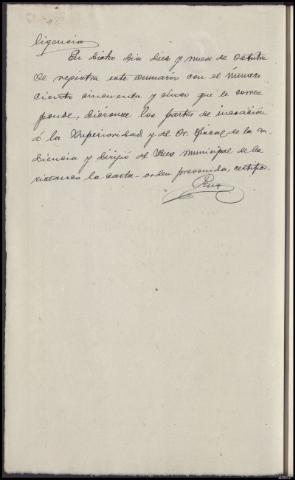 ligencia
En dicho dia dies y nueve de Octubre
se registra este sumario con el numero
ciento cincuenta y cinco que le corres
ponde, dieronse los partes de incoación
á la Superioridad y al Sr. Fiscal de la Au
diencia y dirijió al Juez municipal de la
la carta-orden prevenida, certifico.